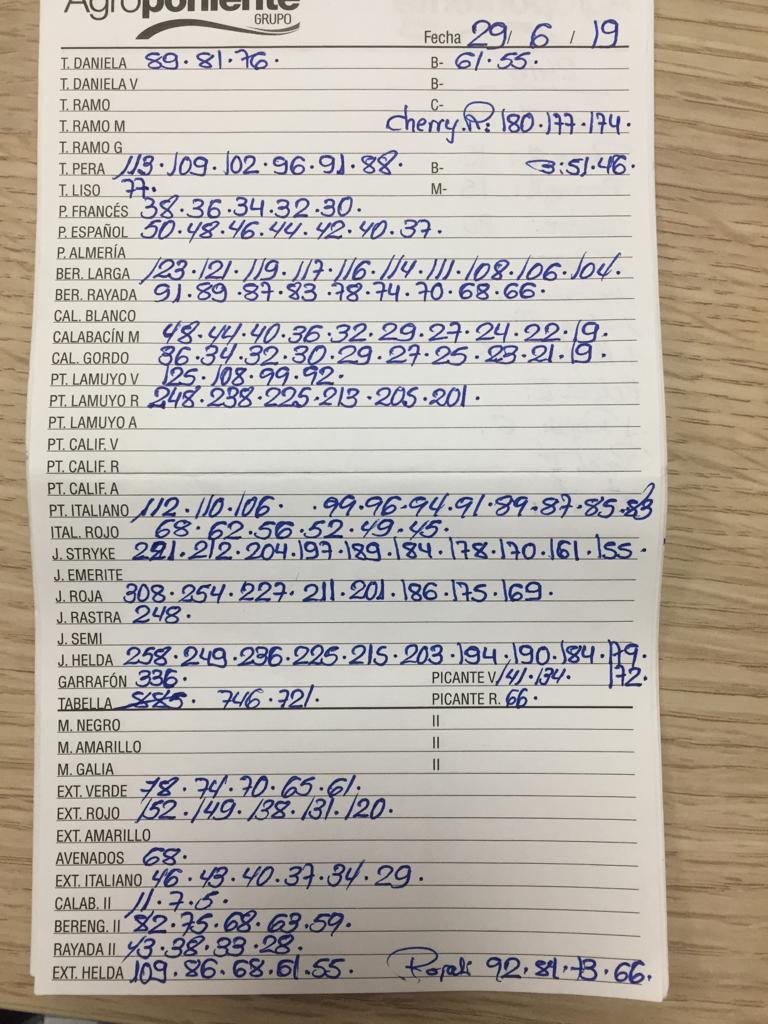 Agroponiente
GRUPO
Fecha 29 / 6 / 19
T. DANIELA 89.81.76. B- 61.55.
T. DANIELA V B-
T. RAMO C-
T. RAMO M Cherry.R: 180.177.174.
T. RAMO G
T. PERA 113.109.102.96.91.88. B- 3:51.46.
T. LISO 77. M-
P. FRANCÉS 38.36.34.32.30.
P. ESPAÑOL 50.48.46.44.42.40.37.
P. ALMERÍA
BER. LARGA 123.121.119.117.116.114.111.108.106.104.
BER. RAYADA 91.89.87.83.78.74.70.68.66.
CAL. BLANCO
CALABACÍN M 48.44.40.36.32.29.27.24.22.19.
CAL. GORDO 36.34.32.30.29.27.25.23.21.19.
PT. LAMUYO V 125.108.99.92.
PT. LAMUYO R 248.238.225.213.205.201.
PT. LAMUYO A
PT. CALIF. V
PT. CALIF. R
PT. CALIF. A
PT. ITALIANO 112.110.106. .99.96.94.91.89.87.85.83
ITAL. ROJO 68.62.56.52.49.45.
J. STRYKE 221.212.204.197.189.184.178.170.161.155.
J. EMERITE
J. ROJA 308.254.227.211.201.186.175.169.
J. RASTRA 248.
J. SEMI
J. HELDA 258.249.236.225.215.203.194.190.184.179.
GARRAFÓN 336. PICANTE V. 141.134. 172.
TABELLA 746.721. PICANTE R. 66.
M. NEGRO II
M. AMARILLO II
M. GALIA II
EXT. VERDE 78.74.70.65.61.
EXT. ROJO 152.149.138.131.120.
EXT. AMARILLO
AVENADOS 68.
EXT. ITALIANO 46.43.40.37.34.29.
CALAB. II 11.7.5.
BERENG. II 82.75.68.63.59.
RAYADA II 43.38.33.28.
EXT. HELDA 109.86.68.61.55. 92.81.73.66.